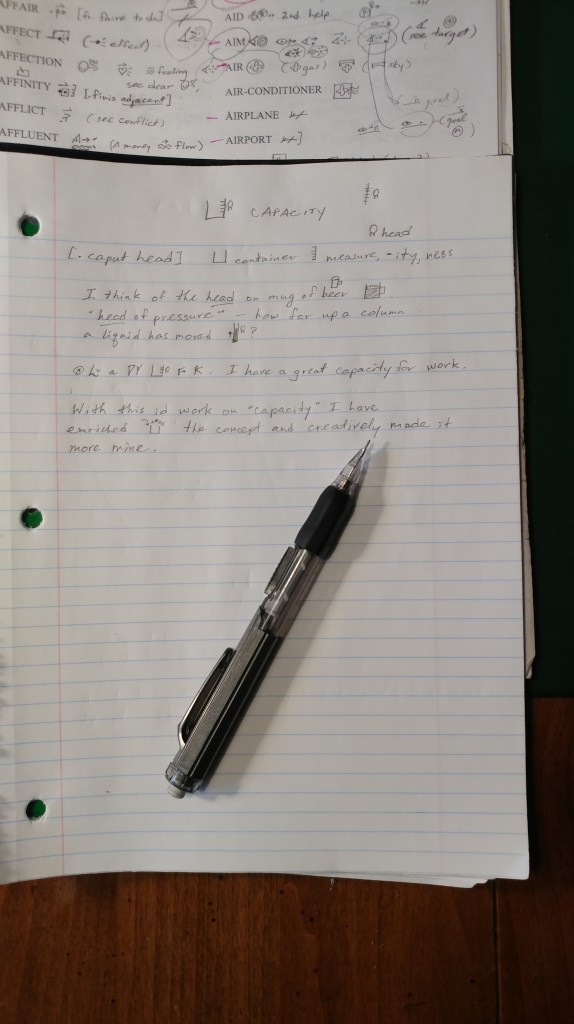 AFFAIR [to faire to do]
AFFECT (effect)
AFFECTION feeling
see dear
AFFINITY [finis adjacent]
AFFLICT (see conflict)
AFFLUENT [A money flow)
AID 2nd. help
AIM (see target)
AIR (gas) (sky)
AIR-CONDITIONER
AIRPLANE
AIRPORT
CAPACITY
head
[. caput head] container measure, -ity, ness
I think of the head on mug of beer
"head of pressure" — how far up a column
a liquid has moved ?
I have a great capacity for work.
With this id work on "capacity" I have
enriched the concept and creatively made it
more mine.